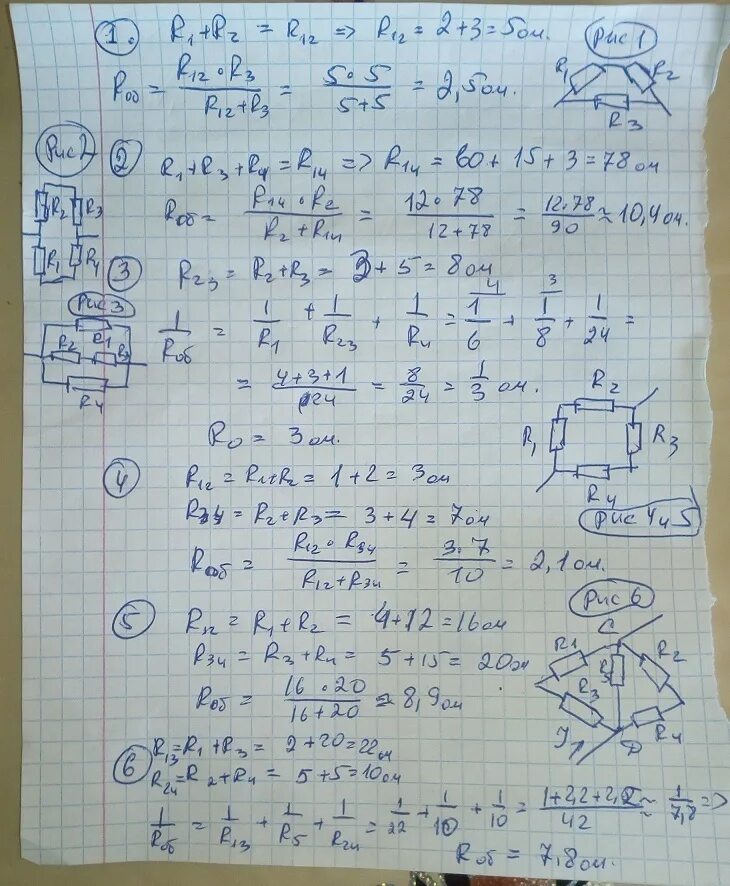 1. R₁+R₂ = R₁₂ => R₁₂ = 2+3=5ом.
Rоб = R₁₂·R₃ / R₁₂+R₃ = 5·5 / 5+5 = 2,5ом.
Рис 1
R₁ R₂
R₃
Рис 2
2 R₁+R₃+R₄=R₁₄ => R₁₄ = 60+15+3=78ом
Rоб = R₁₄·R₂ / R₂+R₁₄ = 12·78 / 12+78 = 12·78 / 90 ≈ 10,4ом.
R₂ R₃
R₁ R₄
3 R₂₃ = R₂+R₃ = 3+5=8ом
Рис 3
R₁
R₂ R₃
R₄
1/Rоб = 1/R₁ + 1/R₂₃ + 1/R₄ = 4 1/6 + 3 1/8 + 1/24 =
= 4+3+1 / 24 = 8/24 = 1/3 ом.
R₀ = 3ом.
R₂
R₁ R₃
R₄
Рис 4и5
4 R₁₂ = R₁+R₂ = 1+2=3ом
R₃₄ = R₂+R₃ = 3+4=7ом
Rоб = R₁₂·R₃₄ / R₁₂+R₃₄ = 3·7 / 10 = 2,1ом.
5 R₁₂ = R₁+R₂ = 4+12=16ом
R₃₄ = R₃+R₄ = 5+15=20ом
Rоб = 16·20 / 16+20 = 8,9ом
Рис 6
C
R₁ R₅ R₂
R₃ R₄
J D
6 R₁₃=R₁+R₃ = 2+20=22ом
R₂₄=R₂+R₄ = 5+5=10ом
1/Rоб = 1/R₁₃ + 1/R₅ + 1/R₂₄ = 1/22 + 1/10 + 1/10 = 1+2,2+2,2 / 42 ≈ 1/7,8 =>
Rоб = 7,8ом.